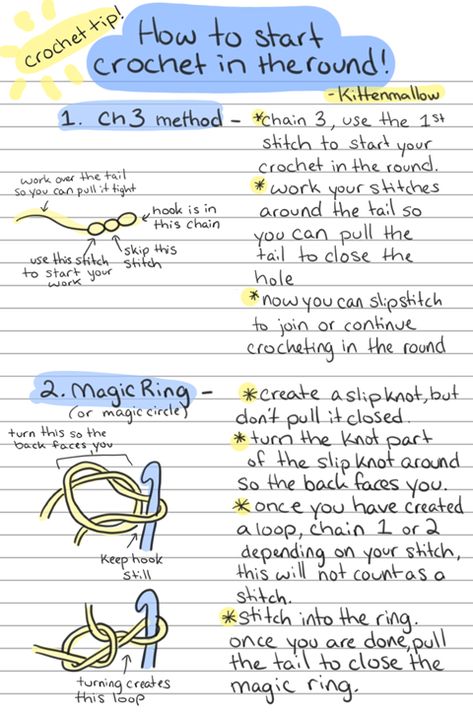 crochet tip!
How to start
crochet in the round!
- Kittenmallow
1. Ch 3 method -
*chain 3, use the 1st
stitch to start your
crochet in the round.
*work your stitches
around the tail so
you can pull the
tail to close the
hole
*now you can slipstitch
to join or continue
crocheting in the round
work over the tail
so you can pull it tight
hook is in
this chain
use this stitch
to start your
work
skip this
stitch
2. Magic Ring -
(or magic circle)
*create a slip knot, but
don't pull it closed.
*turn the knot part
of the slip knot around
so the back faces you.
*once you have created
a loop, chain 1 or 2
depending on your stitch,
this will not count as a
stitch.
*stitch into the ring.
once you are done, pull
the tail to close the
magic ring.
turn this so the
back faces you
Keep hook
still
turning creates
this loop